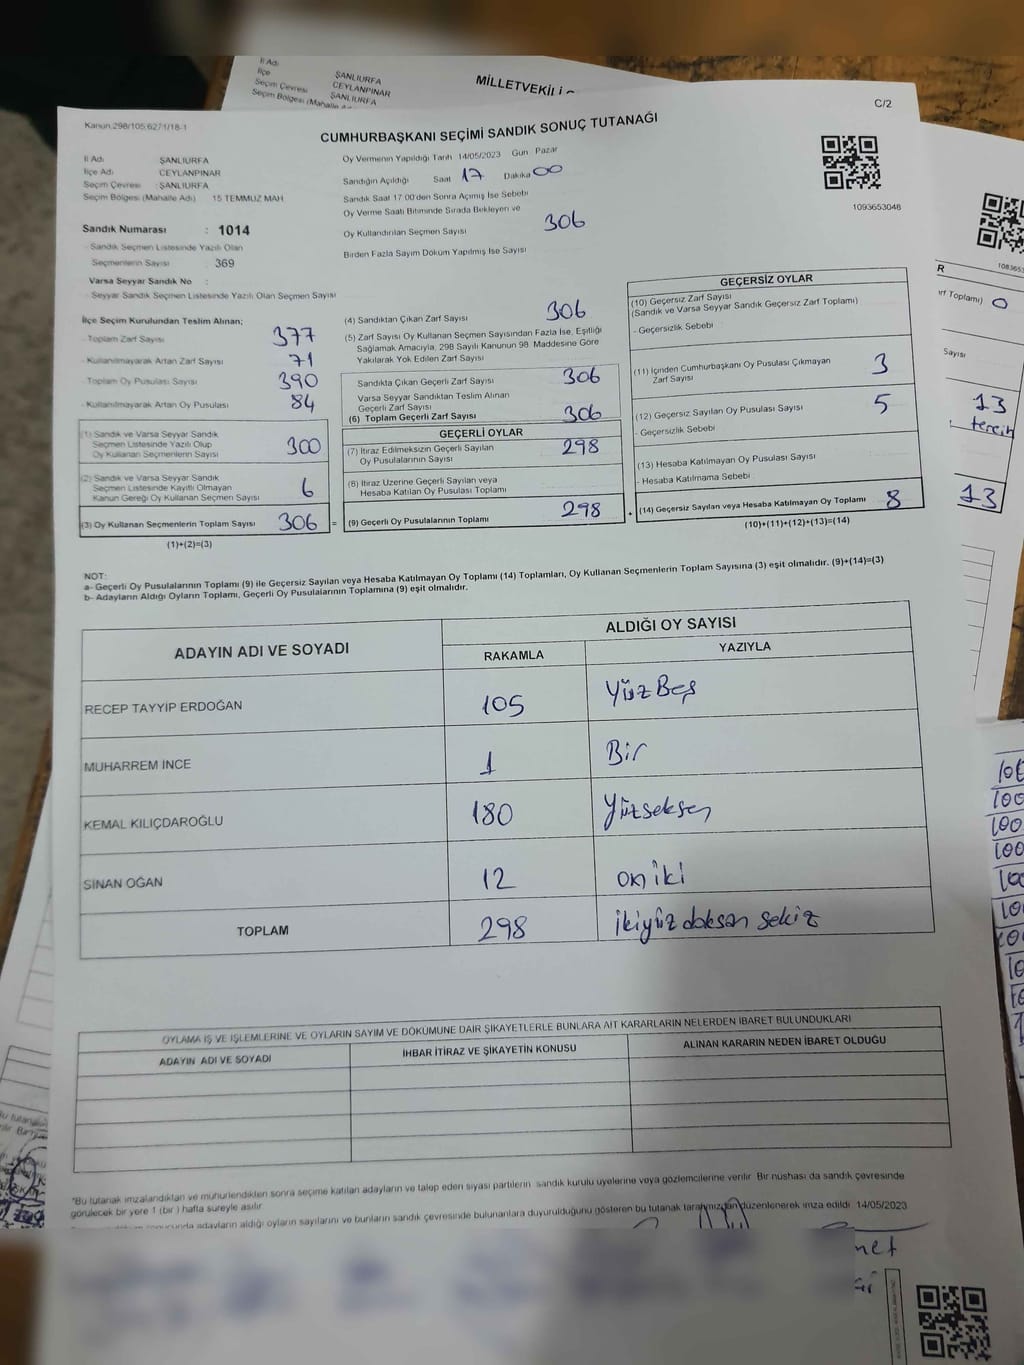 İl Adı ŞANLIURFA
İlçe CEYLANPINAR
Seçim Çevresi ŞANLIURFA
Seçim Bölgesi (Mahalle
MİLLETVEKİLİ
C/2
Kanun.298/105,6271/18-1
CUMHURBAŞKANI SEÇİMİ SANDIK SONUÇ TUTANAĞI
İl Adı ŞANLIURFA
İlçe Adı CEYLANPINAR
Seçim Çevresi : ŞANLIURFA
Seçim Bölgesi (Mahalle Adı) 15 TEMMUZ MAH
Oy Vermenin Yapıldığı Tarih 14/05/2023 Gün Pazar
Sandığın Açıldığı Saat 17 Dakika 00
Sandık Saat 17:00'den Sonra Açılmış İse Sebebi
Oy Verme Saati Bitiminde Sırada Bekleyen ve
Oy Kullandırılan Seçmen Sayısı 306
Birden Fazla Sayım Döküm Yapılmış İse Sayısı
1093653048
Sandık Numarası : 1014
- Sandık Seçmen Listesinde Yazılı Olan
Seçmenlerin Sayısı 369
Varsa Seyyar Sandık No :
- Seyyar Sandık Seçmen Listesinde Yazılı Olan Seçmen Sayısı
İlçe Seçim Kurulundan Teslim Alınan;
- Toplam Zarf Sayısı 377
- Kullanılmayarak Artan Zarf Sayısı 71
- Toplam Oy Pusulası Sayısı 390
- Kullanılmayarak Artan Oy Pusulası 84
(1) Sandık ve Varsa Seyyar Sandık
Seçmen Listesinde Yazılı Olup
Oy Kullanan Seçmenlerin Sayısı 300
(2) Sandık ve Varsa Seyyar Sandık
Seçmen Listesinde Kayıtlı Olmayan
Kanun Gereği Oy Kullanan Seçmen Sayısı 6
(3) Oy Kullanan Seçmenlerin Toplam Sayısı 306 =
(1)+(2)=(3)
(4) Sandıktan Çıkan Zarf Sayısı 306
(5) Zarf Sayısı Oy Kullanan Seçmen Sayısından Fazla İse, Eşitliği
Sağlamak Amacıyla, 298 Sayılı Kanunun 98. Maddesine Göre
Yakılarak Yok Edilen Zarf Sayısı
Sandıkta Çıkan Geçerli Zarf Sayısı 306
Varsa Seyyar Sandıktan Teslim Alınan
Geçerli Zarf Sayısı
(6) Toplam Geçerli Zarf Sayısı 306
GEÇERLİ OYLAR
(7) İtiraz Edilmeksizin Geçerli Sayılan
Oy Pusulalarının Sayısı 298
(8) İtiraz Üzerine Geçerli Sayılan veya
Hesaba Katılan Oy Pusulası Toplamı
(9) Geçerli Oy Pusulalarının Toplamı 298 +
GEÇERSİZ OYLAR
(10) Geçersiz Zarf Sayısı
(Sandık ve Varsa Seyyar Sandık Geçersiz Zarf Toplamı)
- Geçersizlik Sebebi
(11) İçinden Cumhurbaşkanı Oy Pusulası Çıkmayan
Zarf Sayısı 3
(12) Geçersiz Sayılan Oy Pusulası Sayısı 5
- Geçersizlik Sebebi
(13) Hesaba Katılmayan Oy Pusulası Sayısı
- Hesaba Katılmama Sebebi
(14) Geçersiz Sayılan veya Hesaba Katılmayan Oy Toplamı 8
(10)+(11)+(12)+(13)=(14)
R
Toplamı) 0
Sayısı
13
tercih
13
NOT:
a- Geçerli Oy Pusulalarının Toplamı (9) ile Geçersiz Sayılan veya Hesaba Katılmayan Oy Toplamı (14) Toplamları, Oy Kullanan Seçmenlerin Toplam Sayısına (3) eşit olmalıdır. (9)+(14)=(3)
b- Adayların Aldığı Oyların Toplamı, Geçerli Oy Pusulalarının Toplamına (9) eşit olmalıdır.
ADAYIN ADI VE SOYADI ALDIĞI OY SAYISI
RAKAMLA YAZIYLA
RECEP TAYYİP ERDOĞAN 105 YüzBeş
MUHARREM İNCE 1 Bir
KEMAL KILIÇDAROĞLU 180 Yüzseksen
SİNAN OĞAN 12 on iki
TOPLAM 298 ikiyüz doksan sekiz
OYLAMA İŞ VE İŞLEMLERİNE VE OYLARIN SAYIM VE DÖKÜMÜNE DAİR ŞİKAYETLERLE BUNLARA AİT KARARLARIN NELERDEN İBARET BULUNDUKLARI
ADAYIN ADI VE SOYADI İHBAR İTİRAZ VE ŞİKAYETİN KONUSU ALINAN KARARIN NEDEN İBARET OLDUĞU
*Bu tutanak imzalandıktan ve mühürlendikten sonra seçime katılan adayların ve talep eden siyasi partilerin sandık kurulu üyelerine veya gözlemcilerine verilir. Bir nüshası da sandık çevresinde
görülecek bir yere 1 (bir ) hafta süreyle asılır.
adayların aldığı oyların sayılarını ve bunların sandık çevresinde bulunanlara duyurulduğunu gösteren bu tutanak tarafımızdan düzenlenerek imza edildi. 14/05/2023